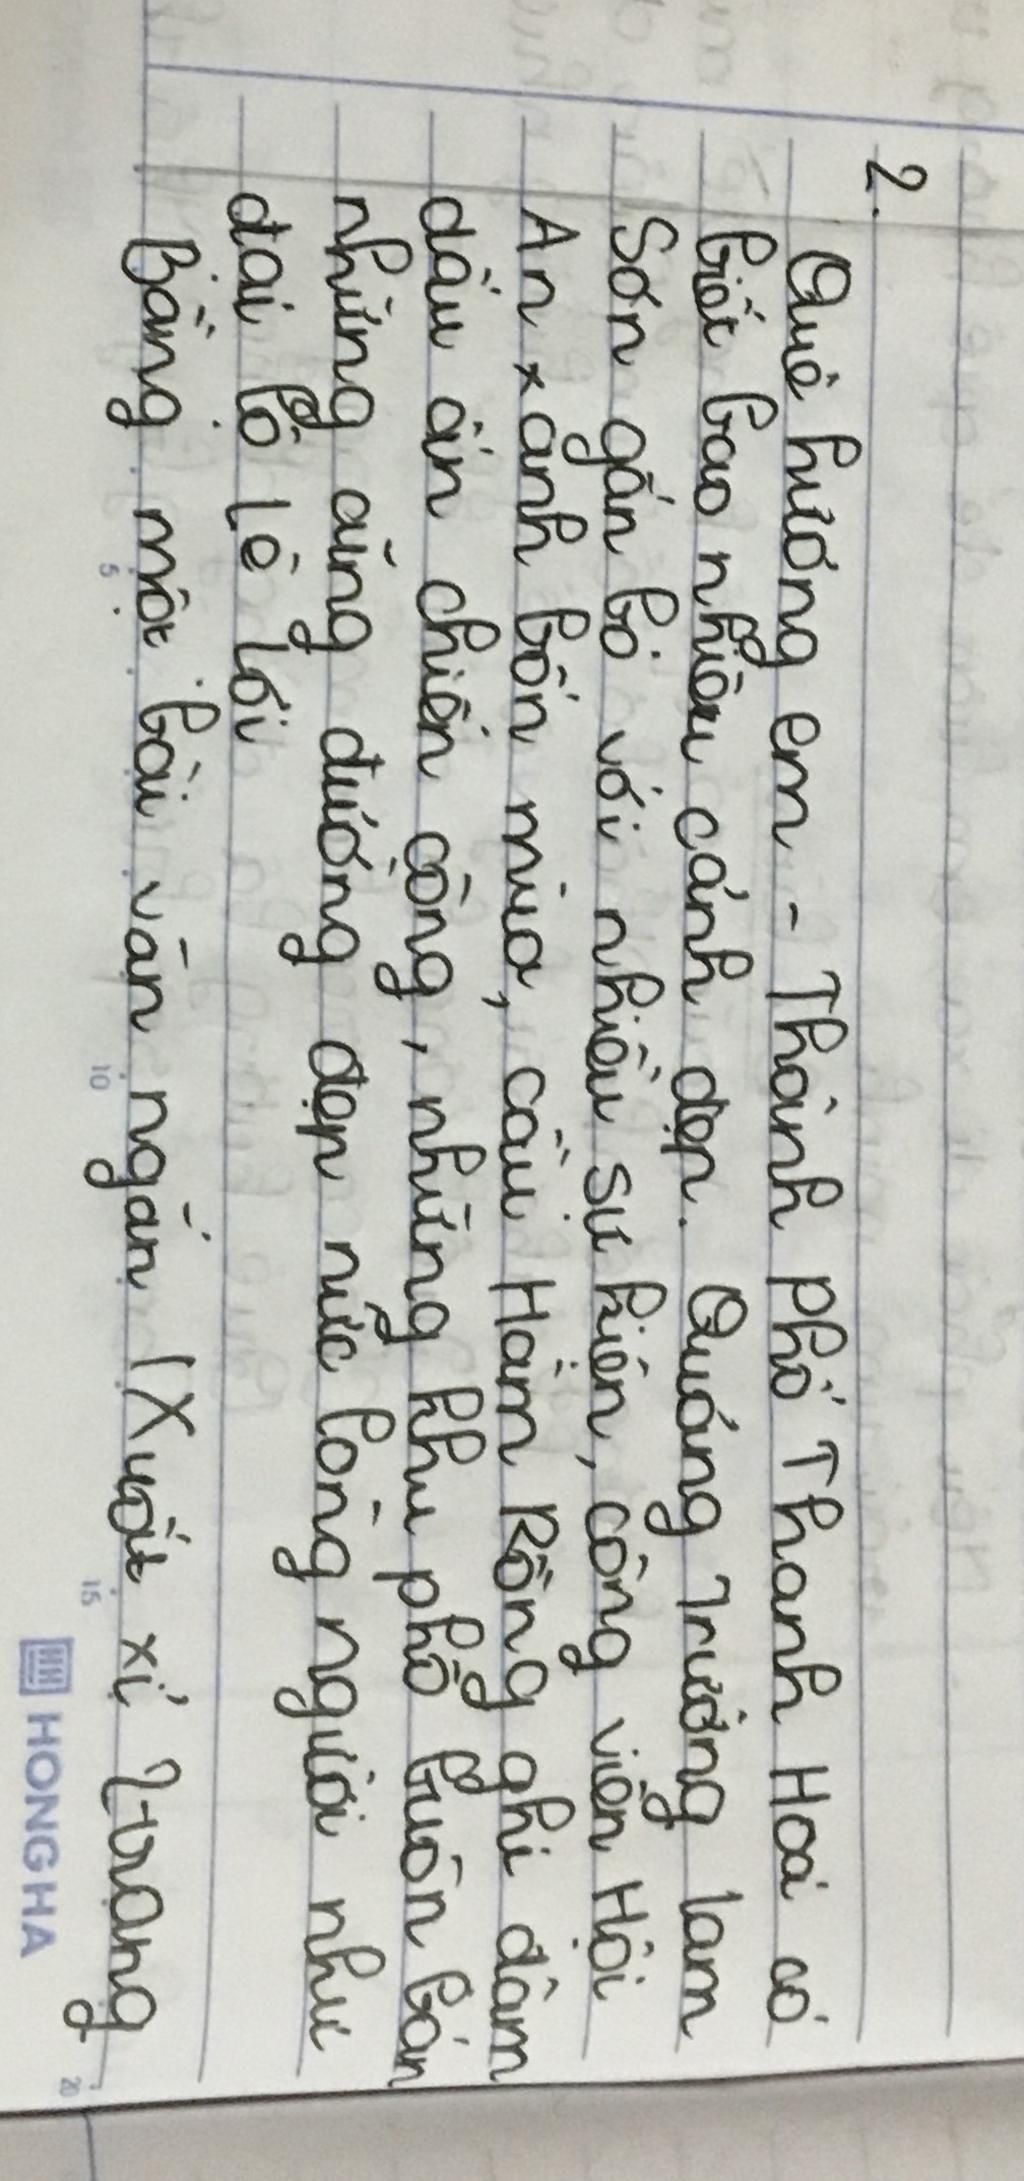 2.
Quê hương em - Thành phố Thanh Hoá có
biết bao nhiêu cảnh đẹp. Quảng Trường lam
Sơn gắn bó với nhiều sự kiện, công viên Hội
An xanh bốn mùa, cầu Hàm Rồng ghi đậm
dấu ấn chiến công, những khu phố buôn bán
những cũng đường đẹp nức lòng người như
đại lộ lê lơi
Bằng một bài văn ngắn (Xuất xí 2 trang
5 10 15 20
HONG HA